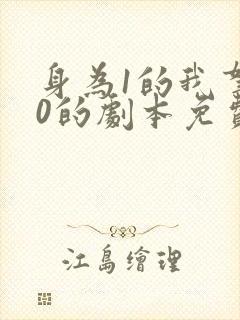 身為1的我
0的劇本免
江島繪理